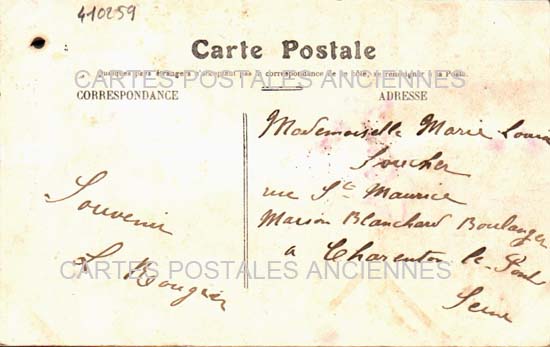 410259
Carte Postale
Quelques pays étrangers n'acceptent pas la correspondance de ce côté, se renseigner à la Poste
CARTES POSTALES ANCIENNES
CORRESPONDANCE
ADRESSE
Souvenir
Mademoiselle Marie Louise
rue St Maurice
Maison Blanchard Boulanger
a Charenton le Pont
Seine
CARTES POSTALES ANCIENNES